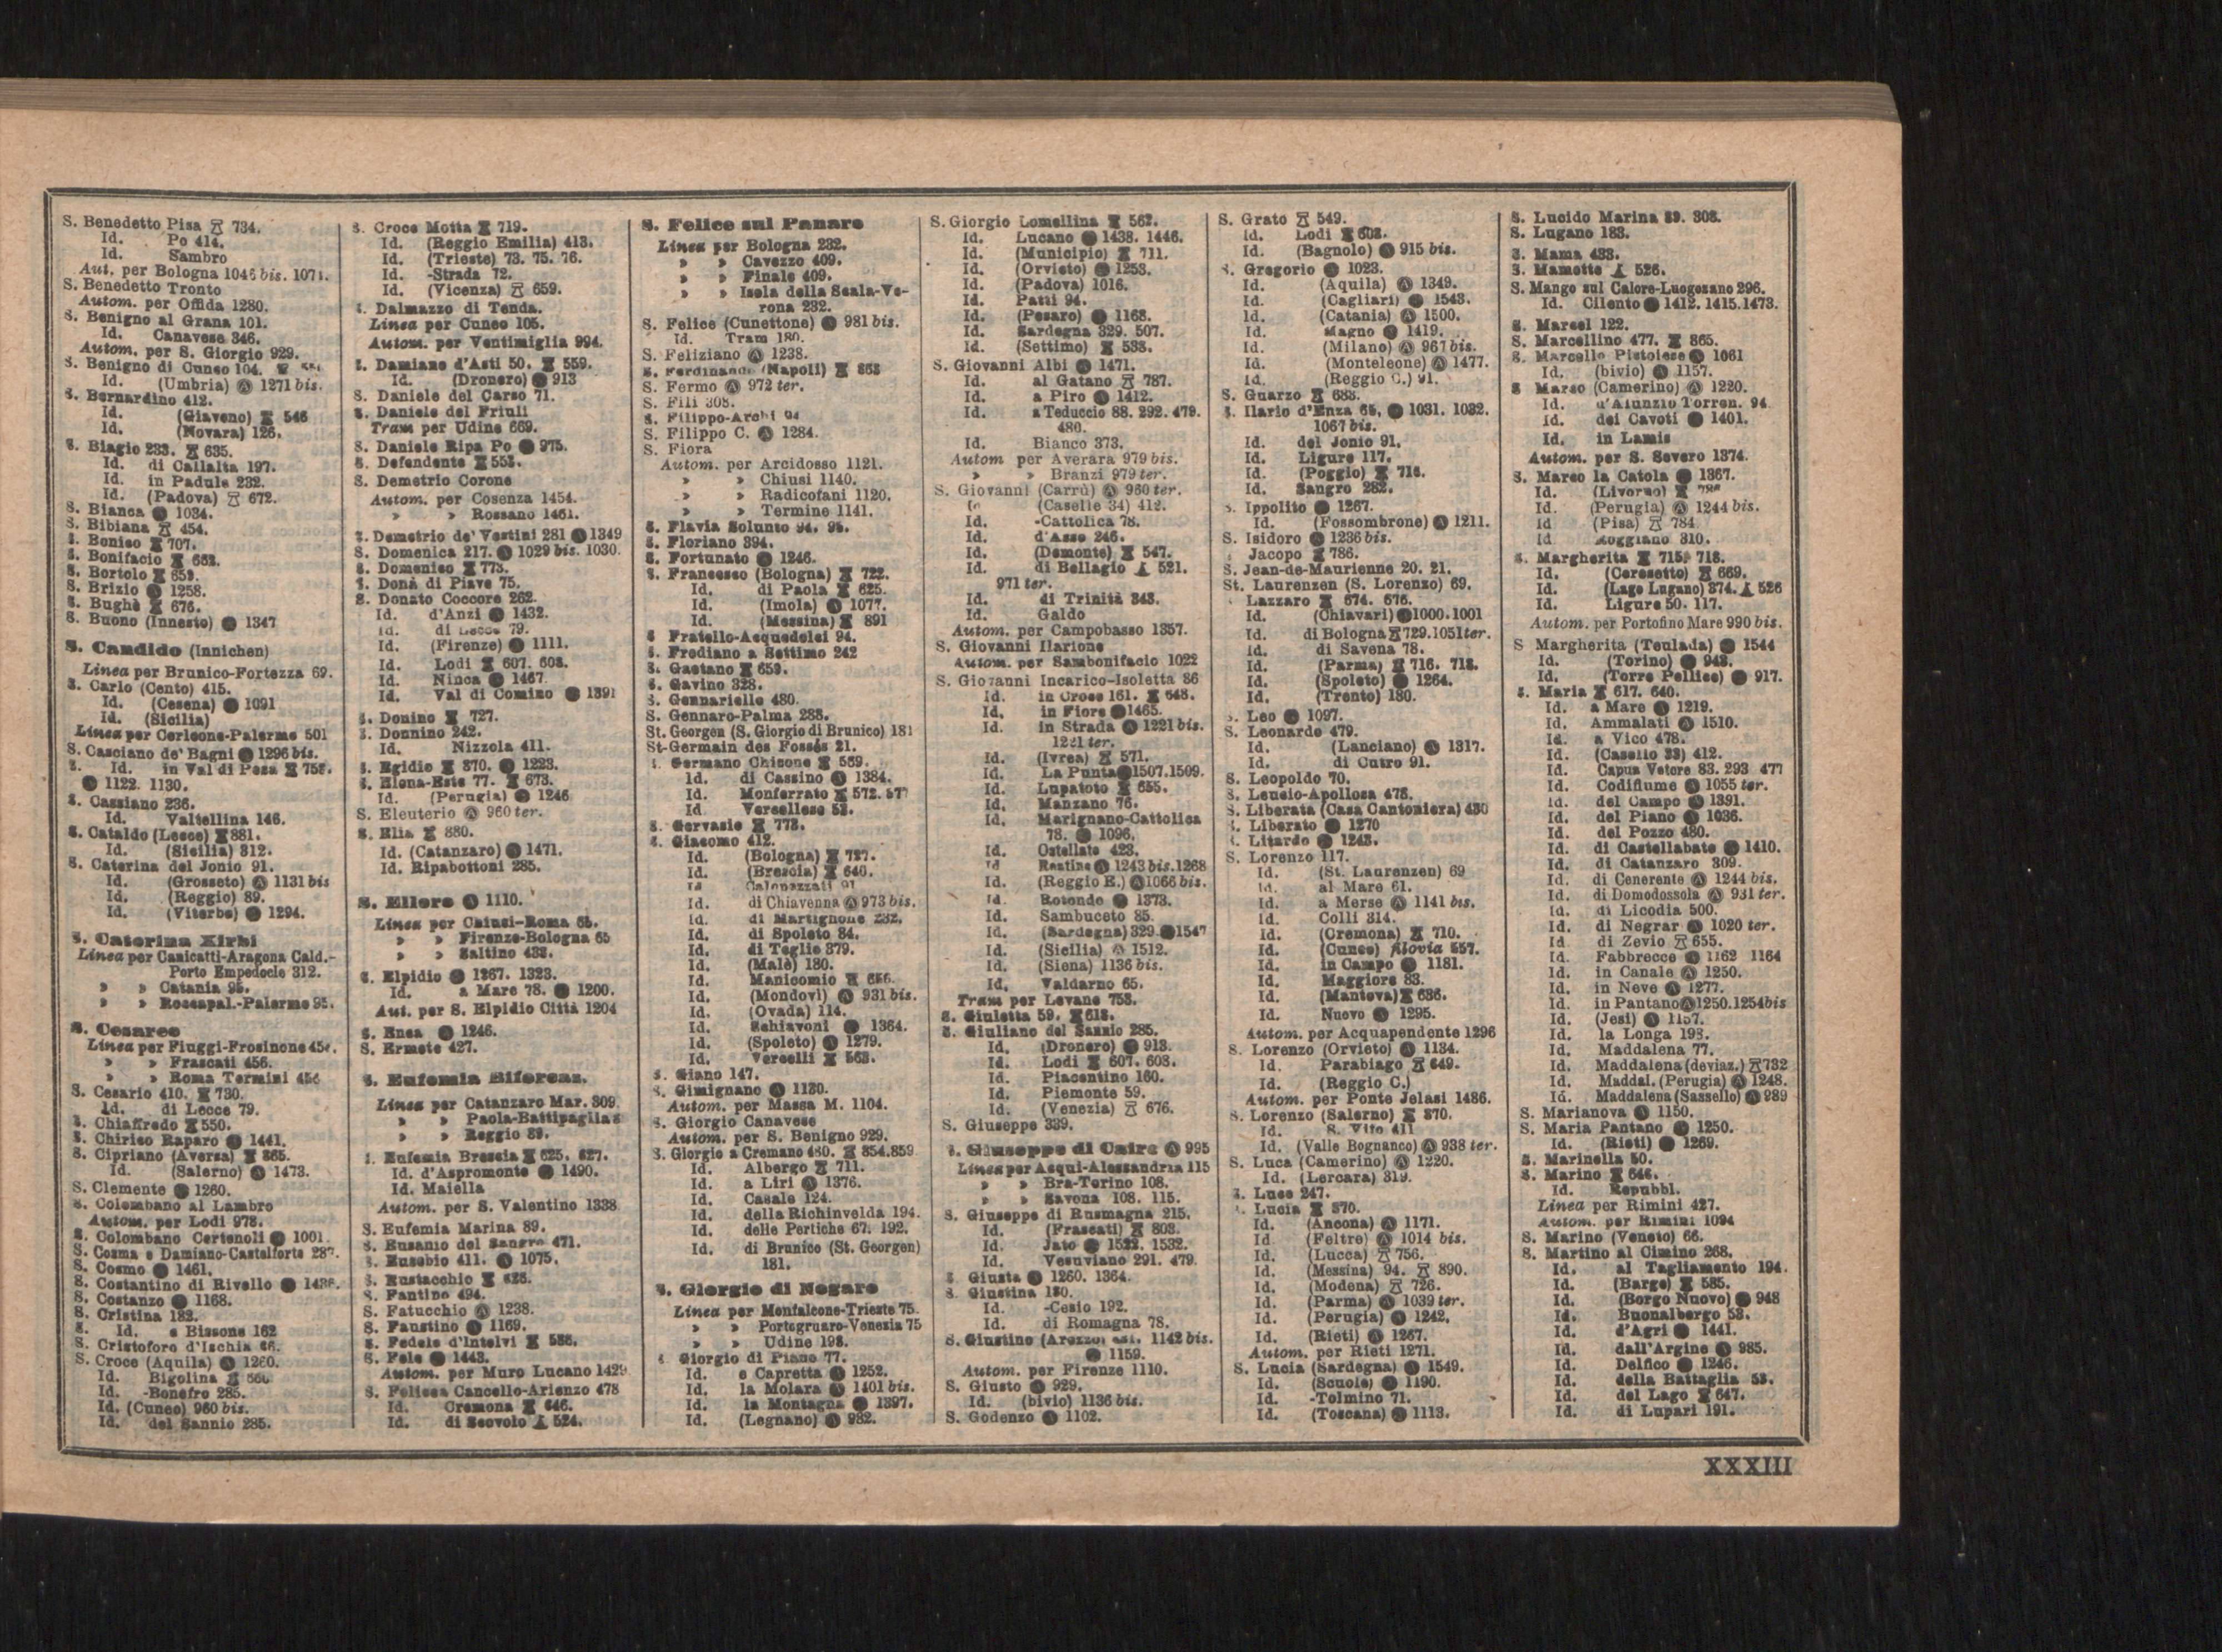 S. Benedetto Pisa 734.
Id. Po 414.
Id. Sambro
Aut. per Bologna 1046 bis. 1071.
S. Benedetto Tronto
Autom. per Offida 1280.
S. Benigno al Grana 101.
Id. Canavese 346.
Autom. per S. Giorgio 929.
S. Benigno di Cuneo 104.
Id. (Umbria) Ⓐ 1271 bis.
S. Bernardino 412.
Id. (Giaveno) 546
Id. (Novara) 126.
S. Biagio 233. 635.
Id. di Callalta 197.
Id. in Padule 232.
Id. (Padova) 672.
S. Bianca ● 1034.
S. Bibiana 454.
S. Boniso 707.
S. Bonifacio 653.
S. Bortolo 659.
S. Brizio ● 1258.
S. Bughè 676.
S. Buono (Innesto) ● 1347
S. Candido (Innichen)
Linea per Brunico-Fortezza 69.
S. Carlo (Cento) 415.
Id. (Cesena) ● 1091
Id. (Sicilia)
Linea per Corleone-Palermo 501
S. Casciano de' Bagni ● 1296 bis.
S. Id. in Val di Pesa 758.
● 1122. 1130.
S. Cassiano 236.
Id. Valtellina 146.
S. Cataldo (Lecce) 881.
Id. (Sicilia) 312.
S. Caterina del Jonio 91.
Id. (Grosseto) Ⓐ 1131 bis
Id. (Reggio) 89.
Id. (Viterbo) ● 1294.
S. Caterina Xirbi
Linea per Canicatti-Aragona Cald.-
Porto Empedocle 312.
» » Catania 95.
» » Roccapal.-Palermo 95.
S. Cesareo
Linea per Fiuggi-Frosinone 456.
» » Frascati 456.
» » Roma Termini 456
S. Cesario 410. 730.
Id. di Lecce 79.
S. Chiaffredo 550.
S. Chirico Raparo ● 1441.
S. Cipriano (Aversa) 865.
Id. (Salerno) Ⓐ 1473.
S. Clemente ● 1260.
S. Colombano al Lambro
Autom. per Lodi 978.
S. Colombano Certenoli ● 1001
S. Cosma e Damiano-Castelforte 287.
S. Cosmo ● 1461.
S. Costantino di Rivello ● 1438.
S. Costanzo ● 1168.
S. Cristina 182.
S. Id. e Bissone 162
S. Cristoforo d'Ischia 66.
S. Croce (Aquila) Ⓐ 1260.
Id. Bigolina 660
Id. -Bonefro 285.
Id. (Cuneo) 960 bis.
Id. del Sannio 285.
S. Croce Motta 719.
Id. (Reggio Emilia) 413.
Id. (Trieste) 73. 75. 76.
Id. -Strada 72.
Id. (Vicenza) 659.
S. Dalmazzo di Tenda.
Linea per Cuneo 105.
Autom. per Ventimiglia 994.
S. Damiano d'Asti 50. 559.
Id. (Dronero) ● 913
S. Daniele del Carso 71.
S. Daniele del Friuli
Tram per Udine 669.
S. Daniele Ripa Po ● 975.
S. Defendente 553.
S. Demetrio Corone
Autom. per Cosenza 1454.
» » Rossano 1461.
S. Demetrio de' Vestini 281 ● 1349
S. Domenica 217. ● 1029 bis. 1030.
S. Domenico 773.
S. Donà di Piave 75.
S. Donato Coccore 262.
Id. d'Anzi ● 1432.
Id. di Lecce 79.
Id. (Firenze) ● 1111.
Id. Lodi 607. 608.
Id. Ninea ● 1467
Id. Val di Comino ● 1391
S. Donino 727.
S. Donnino 242.
Id. Nizzola 411.
S. Egidio 870. ● 1223.
S. Elena-Este 77. 673.
Id. (Perugia) ● 1246
S. Eleuterio Ⓐ 960 ter.
S. Elia 880.
Id. (Catanzaro) ● 1471.
Id. Ripabottoni 285.
S. Ellero Ⓐ 1110.
Linea per Chiusi-Roma 65.
» » Firenze-Bologna 65
» » Saltino 433.
S. Elpidio ● 1267. 1323.
Id. a Mare 78. ● 1200.
Aut. per S. Elpidio Città 1204
S. Enea ● 1246.
S. Ermete 427.
S. Eufemia Biforcaz.
Linea per Catanzaro Mar. 309
» » Paola-Battipaglia
» » Reggio 89.
S. Eufemia Brescia 625. 627.
Id. d'Aspromonte ● 1490.
Id. Maiella
Autom. per S. Valentino 1338
S. Eufemia Marina 89.
S. Eusanio del Sangro 471.
S. Eusebio 411. Ⓐ 1075.
S. Eustacchio 625.
S. Fantino 494.
S. Fatucchio Ⓐ 1238.
S. Faustino ● 1169.
S. Fedele d'Intelvi 586.
S. Fele ● 1443.
Autom. per Muro Lucano 1429
S. Felicea Cancello-Arienzo 478
Id. Cremona 646.
Id. di Scovolo 524.
S. Felice sul Panaro
Linea per Bologna 232.
» » Cavezzo 409.
» » Finale 409.
» » Isola della Scala-Ve-
rona 232.
S. Felice (Cunettone) ● 981 bis.
Id. Tram 180.
S. Feliziano Ⓐ 1238.
S. Ferdinando (Napoli) 863
S. Fermo Ⓐ 972 ter.
S. Fili 308.
S. Filippo-Archi 94
S. Filippo C. Ⓐ 1284.
S. Fiora
Autom. per Arcidosso 1121.
» » Chiusi 1140.
» » Radicofani 1120.
» » Termine 1141.
S. Flavia Solunto 94. 95.
S. Floriano 394.
S. Fortunato ● 1246.
S. Francesco (Bologna) 722.
Id. di Paola 625.
Id. (Imola) Ⓐ 1077.
Id. (Messina) 891
S. Fratello-Acquedolci 94.
S. Frediano a Settimo 242
S. Gaetano 659.
S. Gavino 328.
S. Gennariello 480.
S. Gennaro-Palma 288.
St. Georgen (S. Giorgio di Brunico) 181
St-Germain des Fossés 21.
S. Germano Chisone 569.
Id. di Cassino Ⓐ 1384.
Id. Monferrato 572. 577
Id. Vercellese 53.
S. Gervasio 773.
S. Giacomo 412.
Id. (Bologna) 727.
Id. (Brescia) 640.
Id. Calopezzati 91
Id. di Chiavenna Ⓐ 973 bis.
Id. di Martignone 232.
Id. di Spoleto 84.
Id. di Teglio 379.
Id. (Malè) 180.
Id. Manicomio 656.
Id. (Mondovì) Ⓐ 931 bis.
Id. (Ovada) 114.
Id. Schiavoni ● 1364.
Id. (Spoleto) Ⓐ 1279.
Id. Vercelli 563.
S. Giano 147.
S. Gimignano Ⓐ 1130.
Autom. per Massa M. 1104.
S. Giorgio Canavese
Autom. per S. Benigno 929.
S. Giorgio a Cremano 480. 854.859
Id. Albergo 711.
Id. a Liri Ⓐ 1376.
Id. Casale 124.
Id. della Richinvelda 194.
Id. delle Pertiche 67. 192.
Id. di Brunico (St. Georgen)
181.
S. Giorgio di Nogaro
Linea per Monfalcone-Trieste 75.
» » Portogruaro-Venezia 75
» » Udine 198.
S. Giorgio di Piano 77.
Id. e Capretta Ⓐ 1252.
Id. la Molara Ⓐ 1401 bis.
Id. la Montagna ● 1397.
Id. (Legnano) Ⓐ 982.
S. Giorgio Lomellina 562.
Id. Lucano ● 1438. 1446.
Id. (Municipio) 711.
Id. (Orvieto) ● 1253.
Id. (Padova) 1016.
Id. Patti 94.
Id. (Pesaro) ● 1168.
Id. Sardegna 329. 507.
Id. (Settimo) 533.
S. Giovanni Albi ● 1471.
Id. al Gatano 787.
Id. a Piro ● 1412.
Id. a Teduccio 88. 292. 479.
480.
Id. Bianco 373.
Autom per Averara 979 bis.
» » Branzi 979 ter.
S. Giovanni (Carrù) Ⓐ 960 ter.
Id. (Caselle 34) 412.
Id. -Cattolica 78.
Id. d'Asso 246.
Id. (Demonte) 547.
Id. di Bellagio 521.
971 ter.
Id. di Trinità 343.
Id. Galdo
Autom. per Campobasso 1357.
S. Giovanni Ilarione
Autom. per Sambonifacio 1022
S. Giovanni Incarico-Isoletta 86
Id. in Croce 161. 648.
Id. in Fiore ● 1465.
Id. in Strada Ⓐ 1221 bis.
1221 ter.
Id. (Ivrea) 571.
Id. La Punta ● 1507.1509.
Id. Lupatoto 655.
Id. Manzano 76.
Id. Marignano-Cattolica
78. ● 1096.
Id. Ostellato 423.
Id. Reatino Ⓐ 1243 bis.1268
Id. (Reggio E.) Ⓐ 1066 bis.
Id. Rotondo ● 1373.
Id. Sambuceto 85.
Id. (Sardegna) 329. ● 1547
Id. (Sicilia) Ⓐ 1512.
Id. (Siena) 1136 bis.
Id. Valdarno 65.
Tram per Levane 753.
S. Giuletta 59. 613.
S. Giuliano del Sannio 285.
Id. (Dronero) ● 913.
Id. Lodi 607. 608.
Id. Piacentino 160.
Id. Piemonte 59.
Id. (Venezia) 676.
S. Giuseppe 339.
S. Giuseppe di Cairo Ⓐ 995
Linea per Acqui-Alessandria 115
» » Bra-Torino 108.
» » Savona 108. 115.
S. Giuseppe di Rusmagna 215.
Id. (Frascati) 803.
Id. Jato ● 1522. 1532.
Id. Vesuviano 291. 479.
S. Giusta ● 1260. 1364.
S. Giustina 180.
Id. -Cesio 192.
Id. di Romagna 78.
S. Giustino (Arezzo) 1142 bis.
● 1159.
Autom. per Firenze 1110.
S. Giusto ● 929.
Id. (bivio) 1136 bis.
S. Godenzo Ⓐ 1102.
S. Grato 549.
Id. Lodi 608.
Id. (Bagnolo) ● 915 bis.
S. Gregorio ● 1023.
Id. (Aquila) Ⓐ 1349.
Id. (Cagliari) ● 1543.
Id. (Catania) Ⓐ 1500.
Id. Magno ● 1419.
Id. (Milano) Ⓐ 967 bis.
Id. (Monteleone) Ⓐ 1477.
Id. (Reggio C.) 91.
S. Guarzo 683.
S. Ilario d'Enza 65. ● 1031. 1032.
1067 bis.
Id. del Jonio 91.
Id. Ligure 117.
Id. (Poggio) 718.
Id. Sangro 282.
S. Ippolito ● 1267.
Id. (Fossombrone) Ⓐ 1211.
S. Isidoro Ⓐ 1236 bis.
Jacopo 786.
S. Jean-de-Maurienne 20. 21.
St. Laurenzen (S. Lorenzo) 69.
Lazzaro 674. 676.
Id. (Chiavari) ● 1000.1001
Id. di Bologna 729.1051 ter.
Id. di Savena 78.
Id. (Parma) 716. 718.
Id. (Spoleto) ● 1264.
Id. (Trento) 180.
S. Leo ● 1097.
S. Leonardo 479.
Id. (Lanciano) Ⓐ 1317.
Id. di Cutro 91.
S. Leopoldo 70.
S. Leucio-Apollosa 478.
S. Liberata (Casa Cantoniera) 430
S. Liberato ● 1270
S. Litardo ● 1243.
S. Lorenzo 117.
Id. (St. Laurenzen) 69
Id. al Mare 61.
Id. a Merse Ⓐ 1141 bis.
Id. Colli 314.
Id. (Cremona) 710.
Id. (Cuneo) filovia 557.
Id. in Campo ● 1181.
Id. Maggiore 83.
Id. (Mantova) 636.
Id. Nuovo ● 1295.
Autom. per Acquapendente 1296
S. Lorenzo (Orvieto) Ⓐ 1134.
Id. Parabiago 649.
Id. (Reggio C.)
Autom. per Ponte Jelasi 1486.
S. Lorenzo (Salerno) 870.
Id. S. Vito 411
Id. (Valle Bognanco) Ⓐ 938 ter.
S. Luca (Camerino) Ⓐ 1220.
Id. (Lercara) 319.
S. Luce 247.
S. Lucia 870.
Id. (Ancona) Ⓐ 1171.
Id. (Feltre) Ⓐ 1014 bis.
Id. (Lucca) 756.
Id. (Messina) 94. 890.
Id. (Modena) 726.
Id. (Parma) Ⓐ 1039 ter.
Id. (Perugia) Ⓐ 1242.
Id. (Rieti) Ⓐ 1267.
Autom. per Rieti 1271.
S. Lucia (Sardegna) ● 1549.
Id. (Scuole) ● 1190.
Id. -Tolmino 71.
Id. (Toscana) ● 1113.
S. Lucido Marina 89. 308.
S. Lugano 183.
S. Mama 433.
S. Mamette 526.
S. Mango sul Calore-Luogosano 296.
Id. Cilento ● 1412. 1415.1473.
S. Marcel 122.
S. Marcellino 477. 865.
S. Marcello Pistoiese Ⓐ 1061
Id. (bivio) Ⓐ 1157.
S Marco (Camerino) Ⓐ 1220.
Id. d'Alunzio Torren. 94
Id. dei Cavoti ● 1401.
Id. in Lamis
Autom. per S. Severo 1374.
S. Marco la Catola ● 1367.
Id. (Livorno)
Id. (Perugia) Ⓐ 1244 bis.
Id (Pisa) 784
Id Roggiano 310.
S. Margherita 715. 718.
Id. (Ceresetto) 669.
Id. (Lago Lugano) 374. 526
Id. Ligure 50. 117.
Autom. per Portofino Mare 990 bis.
S Margherita (Teulada) ● 1544
Id. (Torino) ● 943.
Id. (Torre Pellice) ● 917.
S. Maria 617. 640.
Id. a Mare Ⓐ 1219.
Id. Ammalati Ⓐ 1510.
Id. a Vico 478.
Id. (Casello 33) 412.
Id. Capua Vetere 83. 293 477
Id. Codifiume Ⓐ 1055 ter.
Id. del Campo Ⓐ 1391.
Id. del Piano Ⓐ 1036.
Id. del Pozzo 480.
Id. di Castellabate ● 1410.
Id. di Catanzaro 309.
Id. di Cenerente Ⓐ 1244 bis.
Id. di Domodossola Ⓐ 931 ter.
Id. di Licodia 500.
Id. di Negrar Ⓐ 1020 ter.
Id. di Zevio 655.
Id. Fabbrecce ● 1162 1164
Id. in Canale Ⓐ 1250.
Id. in Neve Ⓐ 1277.
Id. in Pantano Ⓐ 1250.1254 bis
Id. (Jesi) Ⓐ 1157.
Id. la Longa 198.
Id. Maddalena 77.
Id. Maddalena (deviaz.) 732
Id. Maddal. (Perugia) Ⓐ 1248.
Id. Maddalena (Sassello) Ⓐ 989
S. Marianova Ⓐ 1150.
S. Maria Pantano ● 1250.
Id. (Rieti) ● 1269.
S. Marinella 50.
S. Marino 646.
Id. Repubbl.
Linea per Rimini 427.
Autom. per Rimini 1094
S. Marino (Veneto) 66.
S. Martino al Cimino 268.
Id. al Tagliamento 194.
Id. (Barge) 585.
Id. (Borgo Nuovo) ● 948
Id. Buonalbergo 53.
Id. d'Agri ● 1441.
Id. dall'Argine Ⓐ 985.
Id. Delfico ● 1246.
Id. della Battaglia 53.
Id. del Lago 647.
Id. di Lupari 191.
XXXIII